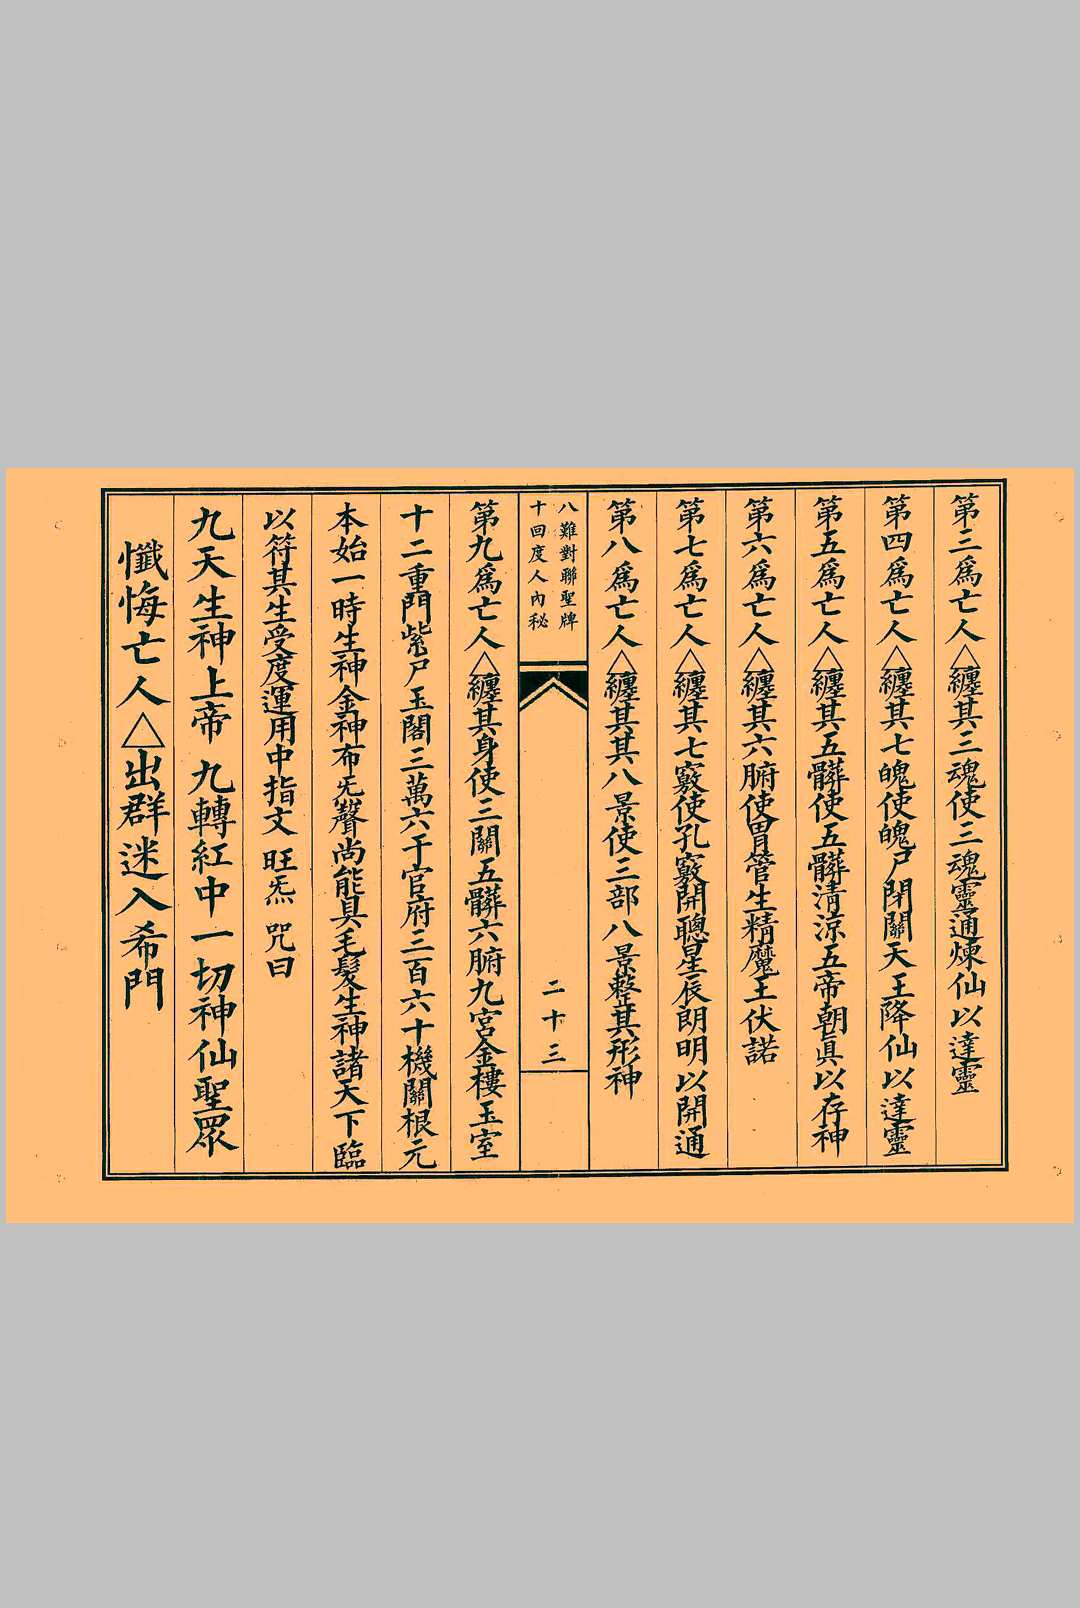 第三爲亡人△纏其三魂使三魂靈通煉仙以達靈
第四爲亡人△纏其七魄使魄戶閉關天王降仙以達靈
第五爲亡人△纏其五髒使五髒清涼五帝朝眞以存神
第六爲亡人△纏其六腑使胃管生精魔王伏諾
第七爲亡人△纏其七竅使孔竅開聰星辰朗明以開通
第八爲亡人△纏其其八景使三部八景整其形神
八難對聯聖牌
十回度人內秘
二十三
第九爲亡人△纏其身使三關五髒六腑九宮金樓玉室
十二重門紫戶玉閣三萬六千官府三百六十機關根元
本始一時生神金神布炁聲尚能具毛髮生神諸天下臨
以符其生受度運用中指文 旺炁 咒曰
九天生神上帝 九轉紅中一切神仙聖眾
懺悔亡人△出群迷入希門